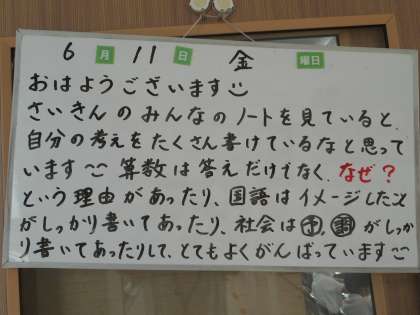 6月11日 金曜日
おはようございます
さいきんのみんなのノートを見ていると、
自分の考えをたくさん書けているなと思って
います 算数は答えだけでなく、なぜ?
という理由があったり、国語はイメージしたこと
がしっかり書いてあったり、社会は㋔、㋠がしっか
り書いてあったりして、とてもよくがんばっています